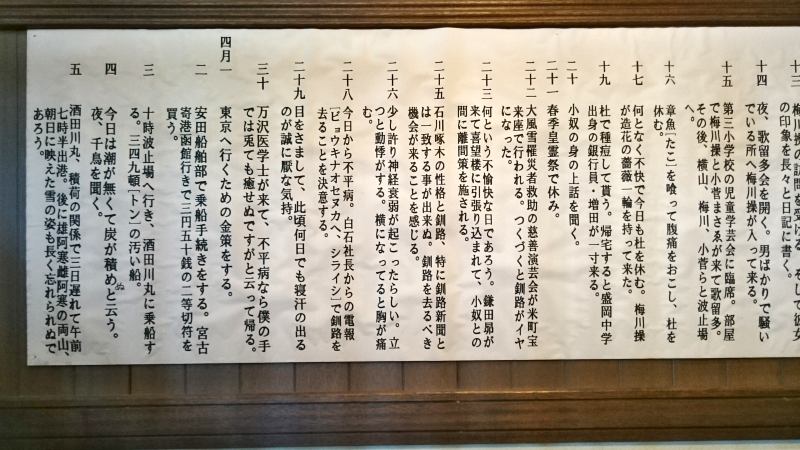 十三
梅川操の訪問を受ける。そして彼女
の印象を長々と日記に書く。
十四
夜、歌留多会を開く。男ばかりで騒い
でいる所へ梅川操が入って来る。
十五
第三小学校の児童学芸会に臨席。部屋
で梅川操と小菅まさゑが来て歌留多。
その後、横山、梅川、小菅らと波止場
へ。
十六
章魚[たこ]を喰って腹痛をおこし、杜を
休む。
十七
何となく不快で今日も杜を休む。梅川操
が造花の薔薇一輪を持って来た。
十九
杜で種痘して貰う。帰宅すると盛岡中学
出身の銀行員・増田が一寸来る。
二十
小奴の身の上話を聞く。
二十一
春季皇霊祭で休み。
二十二
大風雪罹災者救助の慈善演芸会が米町宝
来座で行われる。つくづくと釧路がイヤ
になった。
二十三
何という不愉快な日であろう。鎌田昴が
来て喜望楼に引張り込まれて、小奴との
間に離間策を施される。
二十五
石川啄木の性格と釧路、特に釧路新聞と
は一致する事が出来ぬ。釧路を去るべき
機会が来ることを感じる。
二十六
少し許り神経衰弱が起こったらしい。立
つと動悸がする。横になってると胸が痛
む。
二十八
今日から不平病。白石社長からの電報
「ビョウキナオセヌカヘ、シライシ」で釧路を
去ることを決意する。
二十九
目をさまして、此頃何日でも寝汗の出る
のが誠に厭な気持。
三十
万沢医学士が来て、不平病なら僕の手
では兎ても癒せぬですがと云って帰る。
四月一
東京へ行くための金策をする。
二
安田船舶部で乗船手続きをする。宮古
寄港函館行きで三円五十銭の二等切符を
買う。
三
十時波止場へ行き、酒田川丸に乗船す
る。三四九頓[トン]の汚い船。
四
今日は潮が無くて炭が積めぬと云う。
夜、千鳥を聞く。
五
酒田川丸、積荷の関係で三日遅れて午前
七時半出港。後に雄阿寒雌阿寒の両山、
朝日に映えた雪の姿も長く忘れられぬで
あろう。